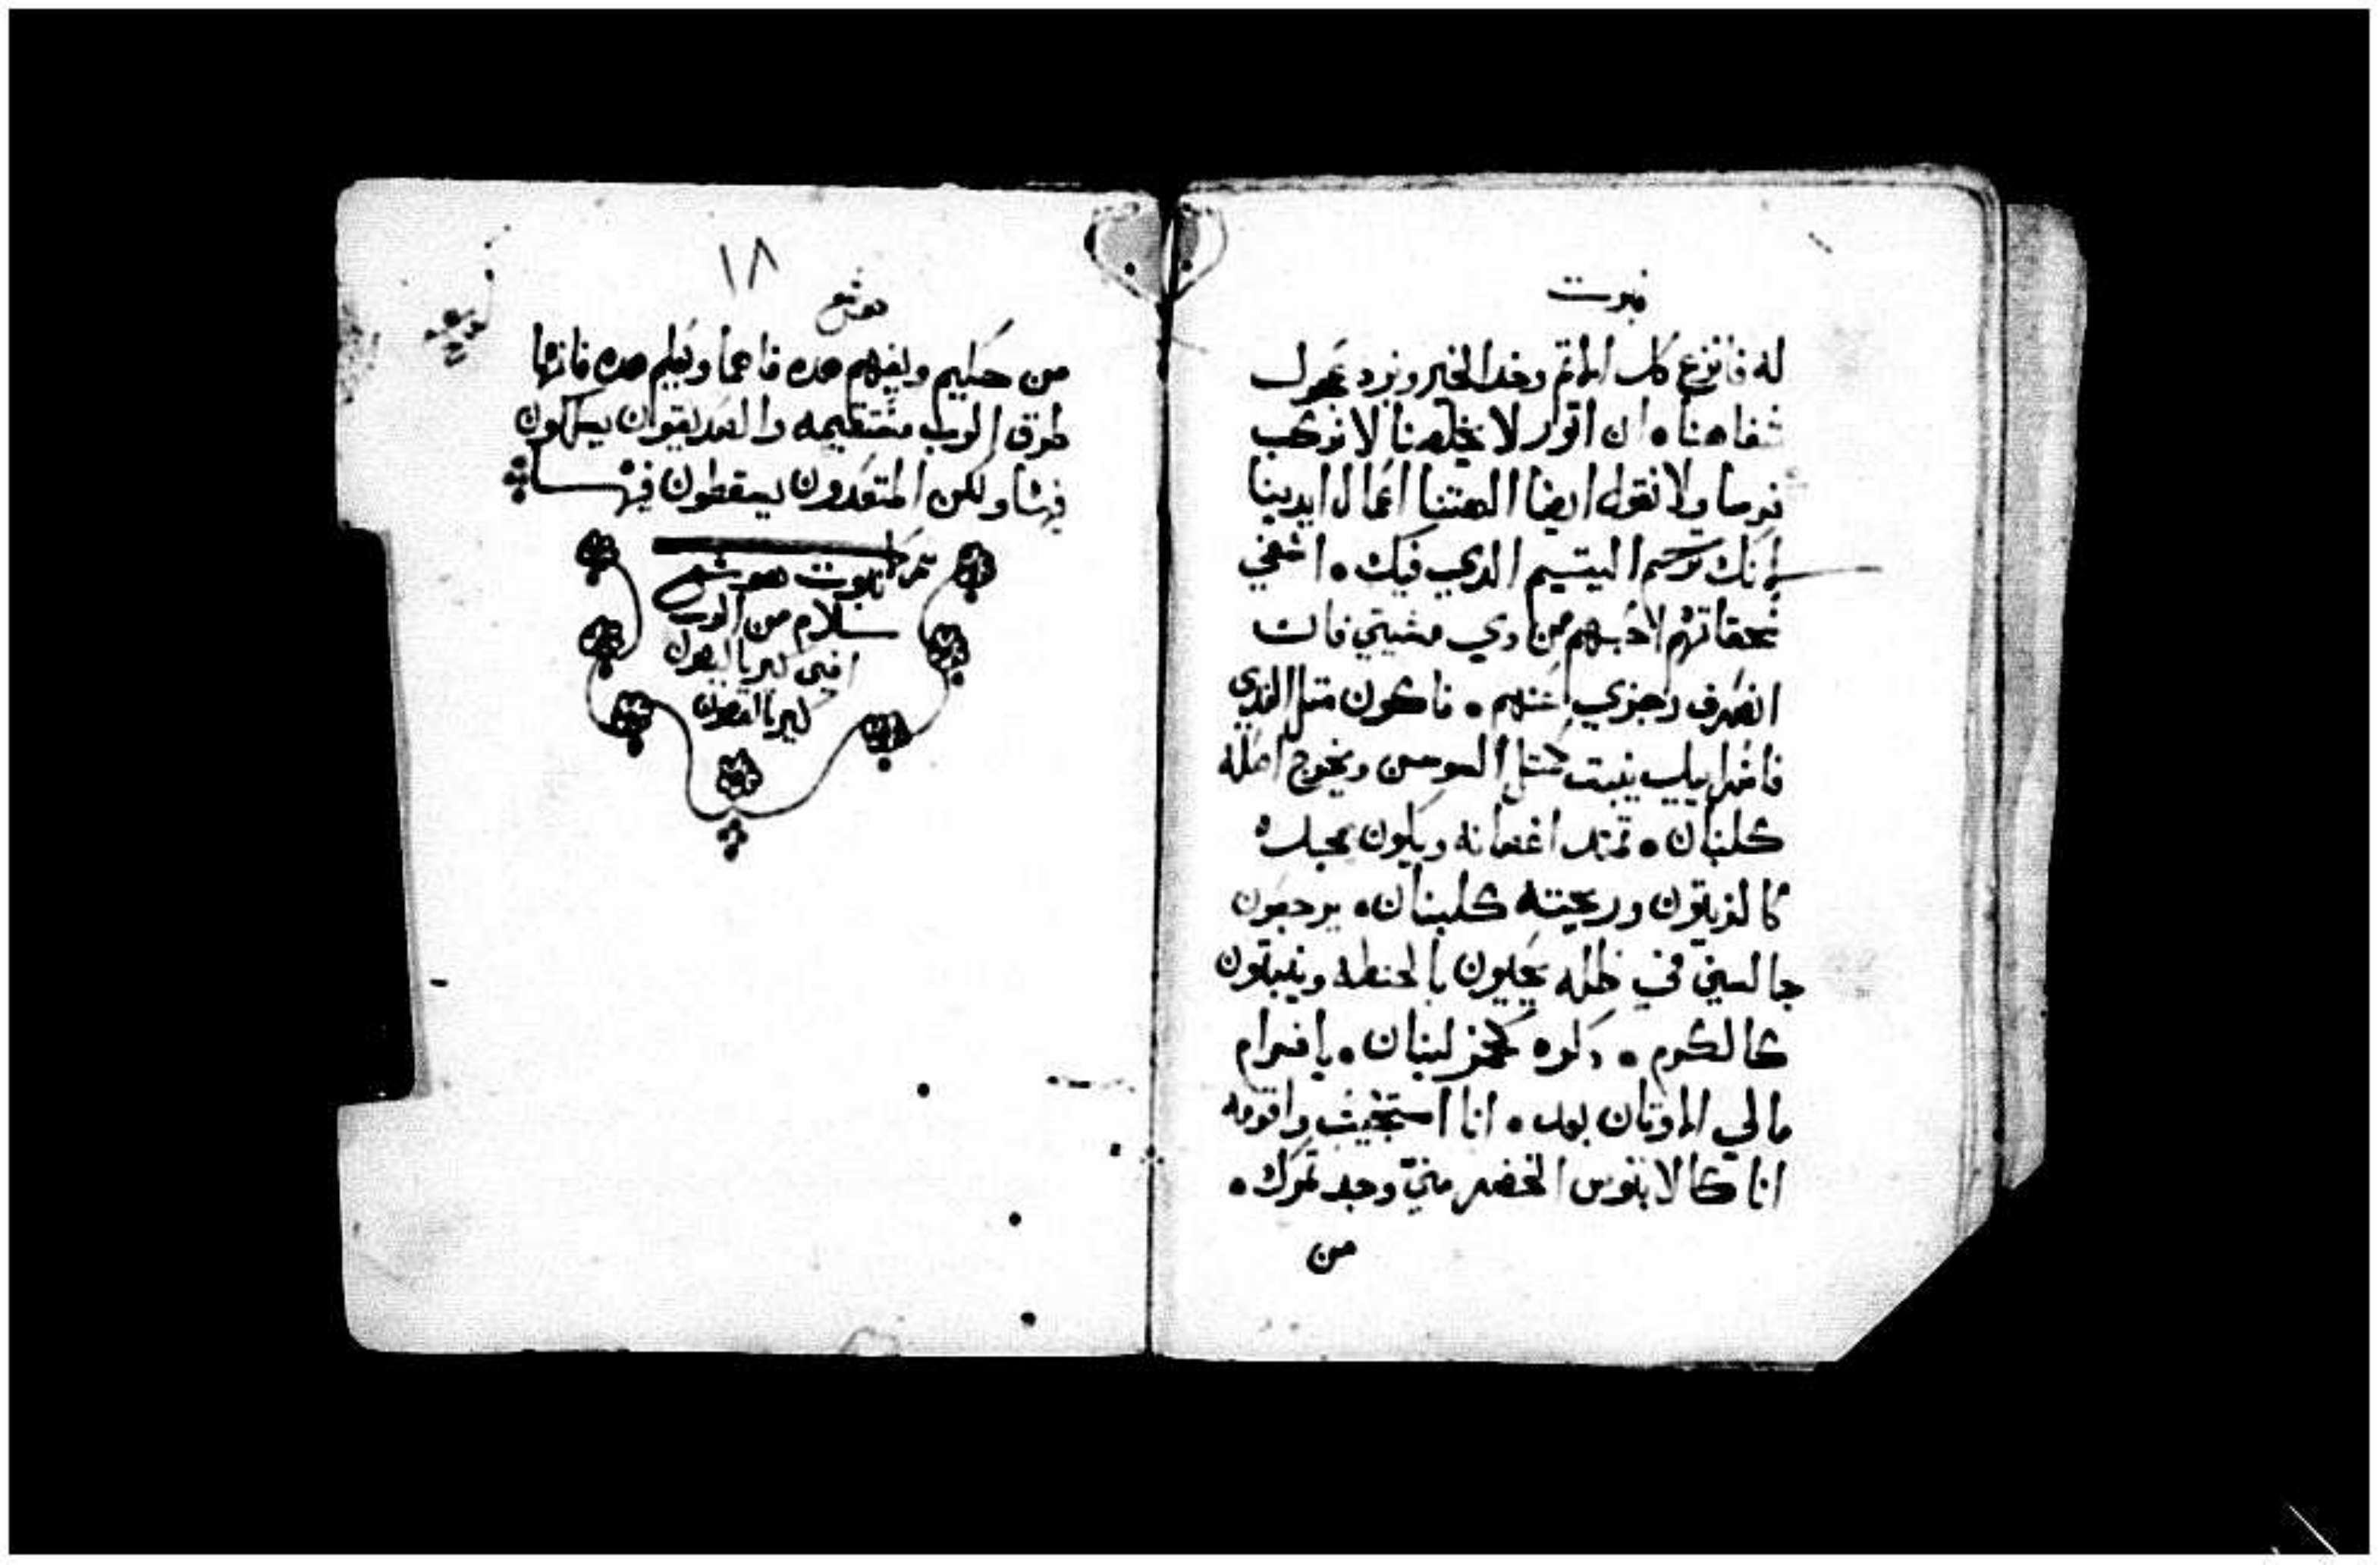 نبوت
له فانزع كل الماتم وخد الخير ونرد عجول
شفاهنا ان اتور لا يخلصنا لا نركب
فرسا ولا نقول ايضا الهتنا اعمال ايدينا
انك ترحم اليتيم الدي فيك اشفي
لاحبهم من دي مشيتي فان
انصرف رجزي عنهم فاكون متل الندي
فاسراييل ينبت كمتل السوسن ويخرج اصله
كلبنان تمتد اغصانه ويكون مجده
كالزيتون وريحته كلبنان يرجعون
جالسين في ظله يحيون بالحنطه وينبتون
كالكرم دكره كخمر لبنان يا افرام
مالي الاوتان بعد انا استجيب واقومه
انا كالابنوس الخضر مني وجد تمرك
من
١٨
هوشع
من حكيم ويفهم هده فاهما ويعلم هده فانها
طرق الرب مستقيمه والصديقون يسلكون
فيها ولكن المتمردون يسقطون فيها
نبوت هوشع
سلام من الرب
امين كيرياليصون
كيرياليصون